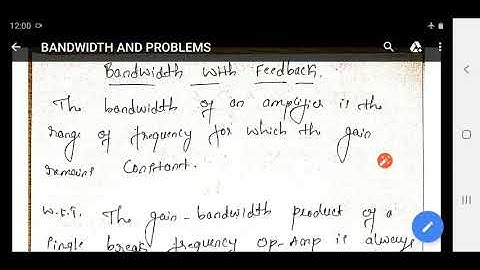 12:00
BANDWIDTH AND PROBLEMS
Bandwidth with Feedback.
The bandwidth of an amplifier is the
range of frequency for which the gain
remains Constant.
W.K.T. The gain-bandwidth product of a
Single break frequency op-Amp is always